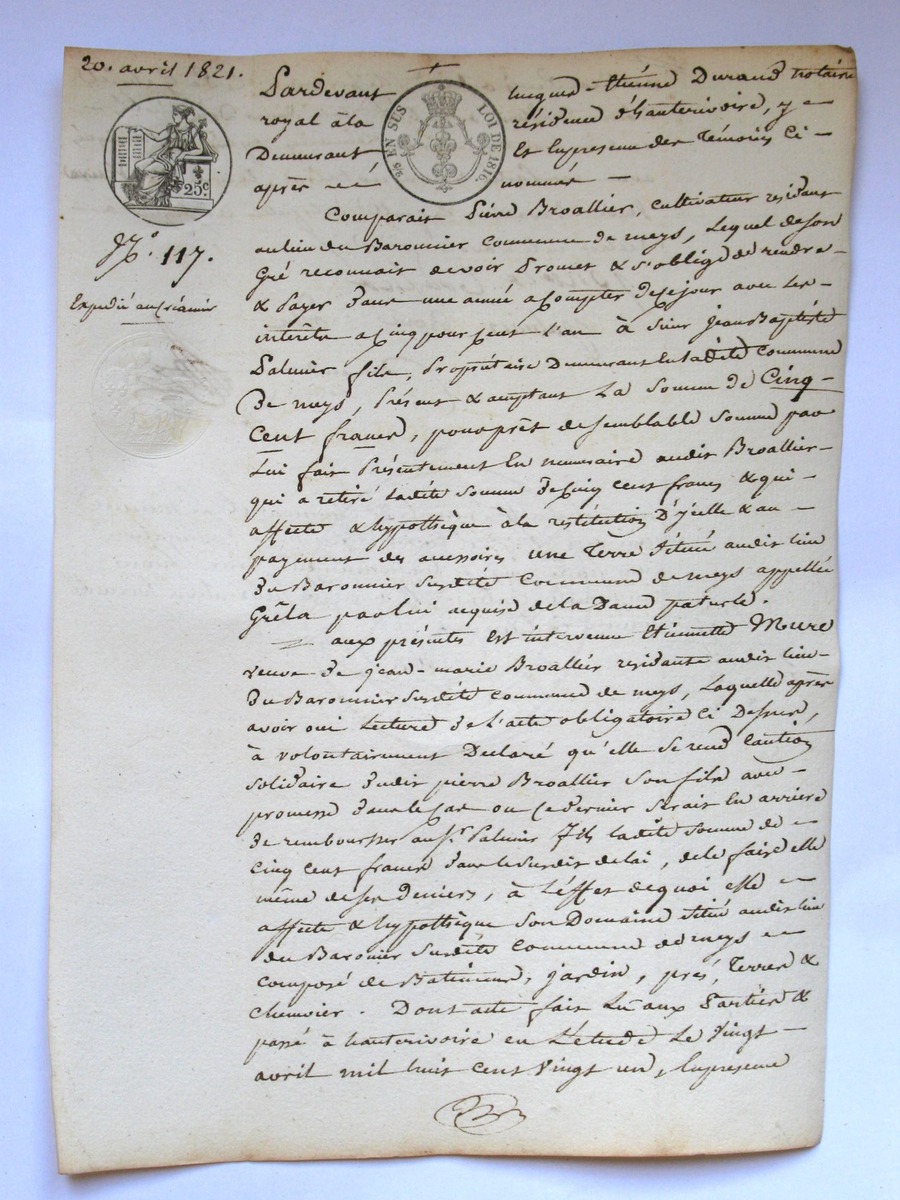 20. avril 1821.
Pardevant Jacques-Etiénne Durand notaire
royal à la résidence d'hauterivoire, y
Demeurant Et En presence des Témoins Ci-
après nommés
25 EN SUS LOI DE 1816.
25c
No. 117.
Expedié au Créancier
Comparait Pierre Broallier, cultivateur résidant
au lieu du Baronnier Commune de meys, Lequel de son
Gré reconnait devoir Promet & s'oblige de rendre
& Payer Dans une année a Compter de ce jour avec Les
intérêts a Cinq pour Cent L'an à Sieur Jean Baptiste
Palmier fils, Propriétaire Demeurant En Ladite Commune
De meys, Présent & acceptant La Somme de Cinq
Cent francs, pour prêt de semblable Somme par
Lui fait Présentement En numéraire audit Broallier
qui a retiré Ladite Somme De Cinq Cent francs & qui
affecte & hypothèque à la restitution D'ycelle & au
payement des accessoires une Terre Située audit lieu
Du Baronnier Susdite Commune de meys appellée
Grêla par lui acquise de la Dame paturle.
aux présentes Est intervenue Etiennette Mure
veuve De jean-marie Broallier residante audit lieu
Du Baronnier Susdite Commune de meys, Laquelle après
avoir oui Lecture De l'acte obligatoire Ci Dessus,
à volontairement Declaré qu'elle Se rend Caution
Solidaire Dudit pierre Broallier Son fils avec
promesse Dans le Cas ou Ce dernier Serait En arriere
De rembourser au Sr. Palmier fils ladite Somme de
Cinq Cent francs Dans le Susdit delai, de le faire elle
même de ses Deniers, à L'éffet de quoi elle
affecte & hypothèque Son Domaine Situé audit lieu
du Baronier Susdite Commune de meys
Composé de Batiments, jardin, prés, Terres &
Chenevier. Dont acte fait Lu aux Parties &
passé à hauterivoire en L'étude Le Vingt
avril mil huit Cent Vingt un, En presence